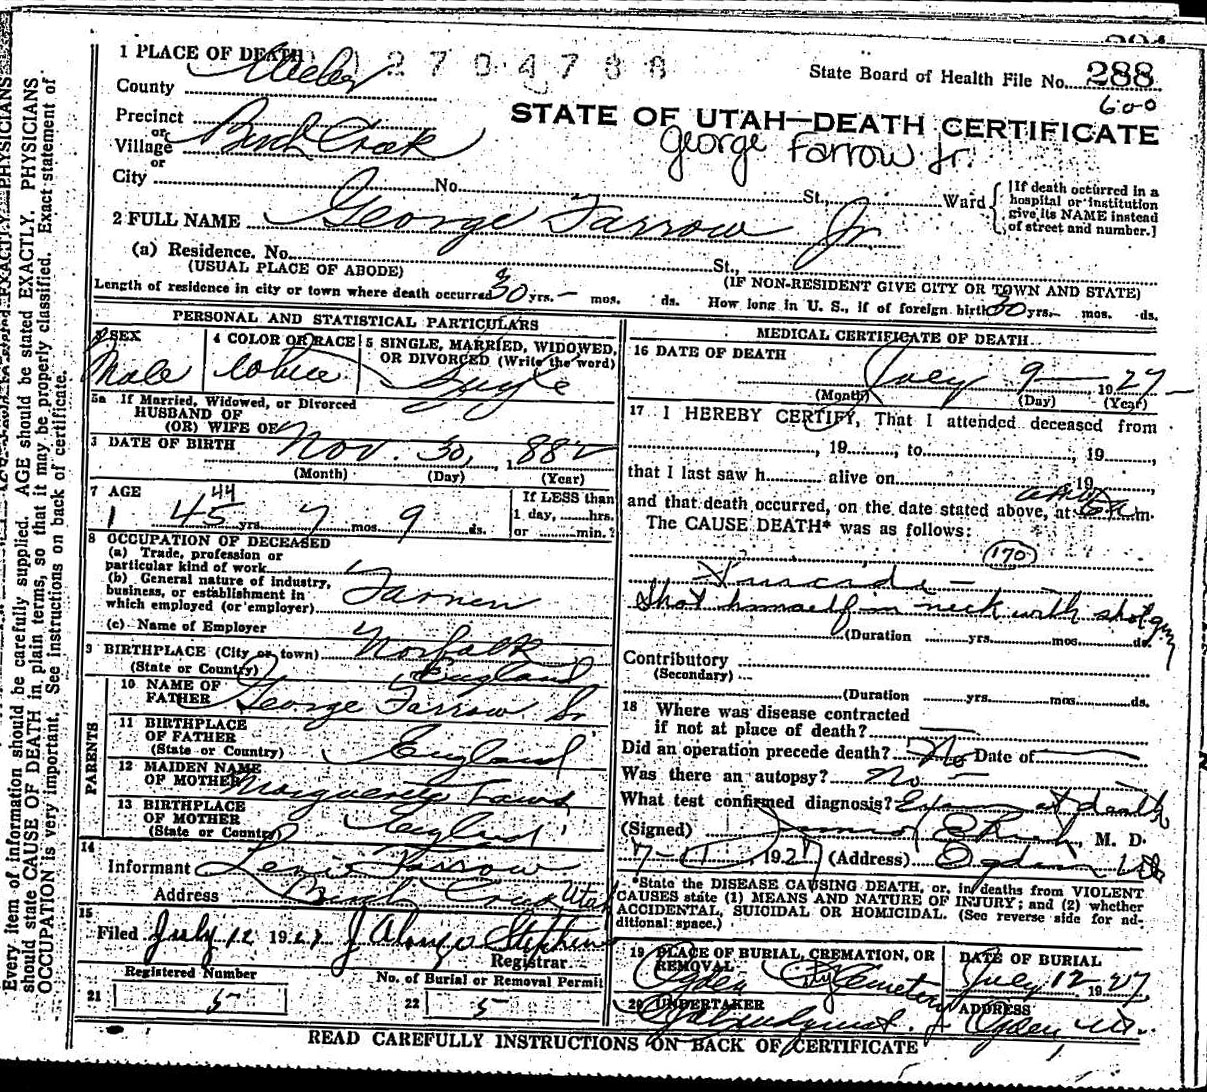 Every item of information should be carefully supplied. AGE should be stated EXACTLY. PHYSICIANS
should state CAUSE OF DEATH in plain terms, so that it may be properly classified. Exact statement of
OCCUPATION is very important. See instructions on back of certificate.
1 PLACE OF DEATH
2704788
State Board of Health File No. 288
600
County Weber
STATE OF UTAH—DEATH CERTIFICATE
George Farrow Jr.
Precinct
or
Village Burch Creek
or
City No. St., Ward
[If death occurred in a
hospital or institution
give its NAME instead
of street and number.]
2 FULL NAME George Farrow Jr.
(a) Residence. No. St.,
(USUAL PLACE OF ABODE) (IF NON-RESIDENT GIVE CITY OR TOWN AND STATE)
Length of residence in city or town where death occurred 30 yrs. — mos. ds. How long in U. S., if of foreign birth 30 yrs. mos. ds.
PERSONAL AND STATISTICAL PARTICULARS
3 SEX
Male
4 COLOR OR RACE
White
5 SINGLE, MARRIED, WIDOWED,
OR DIVORCED (Write the word)
Single
5a If Married, Widowed, or Divorced
HUSBAND OF
(OR) WIFE OF
DATE OF BIRTH Nov. 30, 1882
(Month) (Day) (Year)
7 AGE
44
45 yrs. 7 mos. 9 ds.
If LESS than
1 day, hrs.
or min.?
8 OCCUPATION OF DECEASED
(a) Trade, profession or
particular kind of work
(b) General nature of industry,
business, or establishment in
which employed (or employer) Farmer
(c) Name of Employer
9 BIRTHPLACE (City or town) Norfolk
(State or Country) England
PARENTS
10 NAME OF
FATHER George Farrow Sr
11 BIRTHPLACE
OF FATHER
(State or Country) England
12 MAIDEN NAME
OF MOTHER
13 BIRTHPLACE
OF MOTHER
(State or Country) England
14
Informant Farrow
Address Burch Creek Utah
15
Filed July 12 1927 J Alonzo Stephens
Registrar
Registered Number
21 5
No. of Burial or Removal Permit
22 5
MEDICAL CERTIFICATE OF DEATH
16 DATE OF DEATH
July 9 — 1927
(Month) (Day) (Year)
17 I HEREBY CERTIFY, That I attended deceased from
, 19 , to , 19 ,
that I last saw h alive on , 19 ,
and that death occurred, on the date stated above, at m.
The CAUSE DEATH* was as follows:
170
Suicide —
Shot himself in neck with shotgun
(Duration yrs. mos. ds.
Contributory
(Secondary)
(Duration yrs. mos. ds.
18 Where was disease contracted
if not at place of death?
Did an operation precede death? No Date of
Was there an autopsy? No —
What test confirmed diagnosis? at death
(Signed) M. D.
1927 (Address) Ogden Utah
*State the DISEASE CAUSING DEATH, or, in deaths from VIOLENT
CAUSES state (1) MEANS AND NATURE OF INJURY; and (2) whether
ACCIDENTAL, SUICIDAL OR HOMICIDAL. (See reverse side for ad-
ditional space.)
19 PLACE OF BURIAL, CREMATION, OR
REMOVAL
Ogden City Cemetery
DATE OF BURIAL
July 12 1927
20 UNDERTAKER
ADDRESS
Ogden Ut.
READ CAREFULLY INSTRUCTIONS ON BACK OF CERTIFICATE